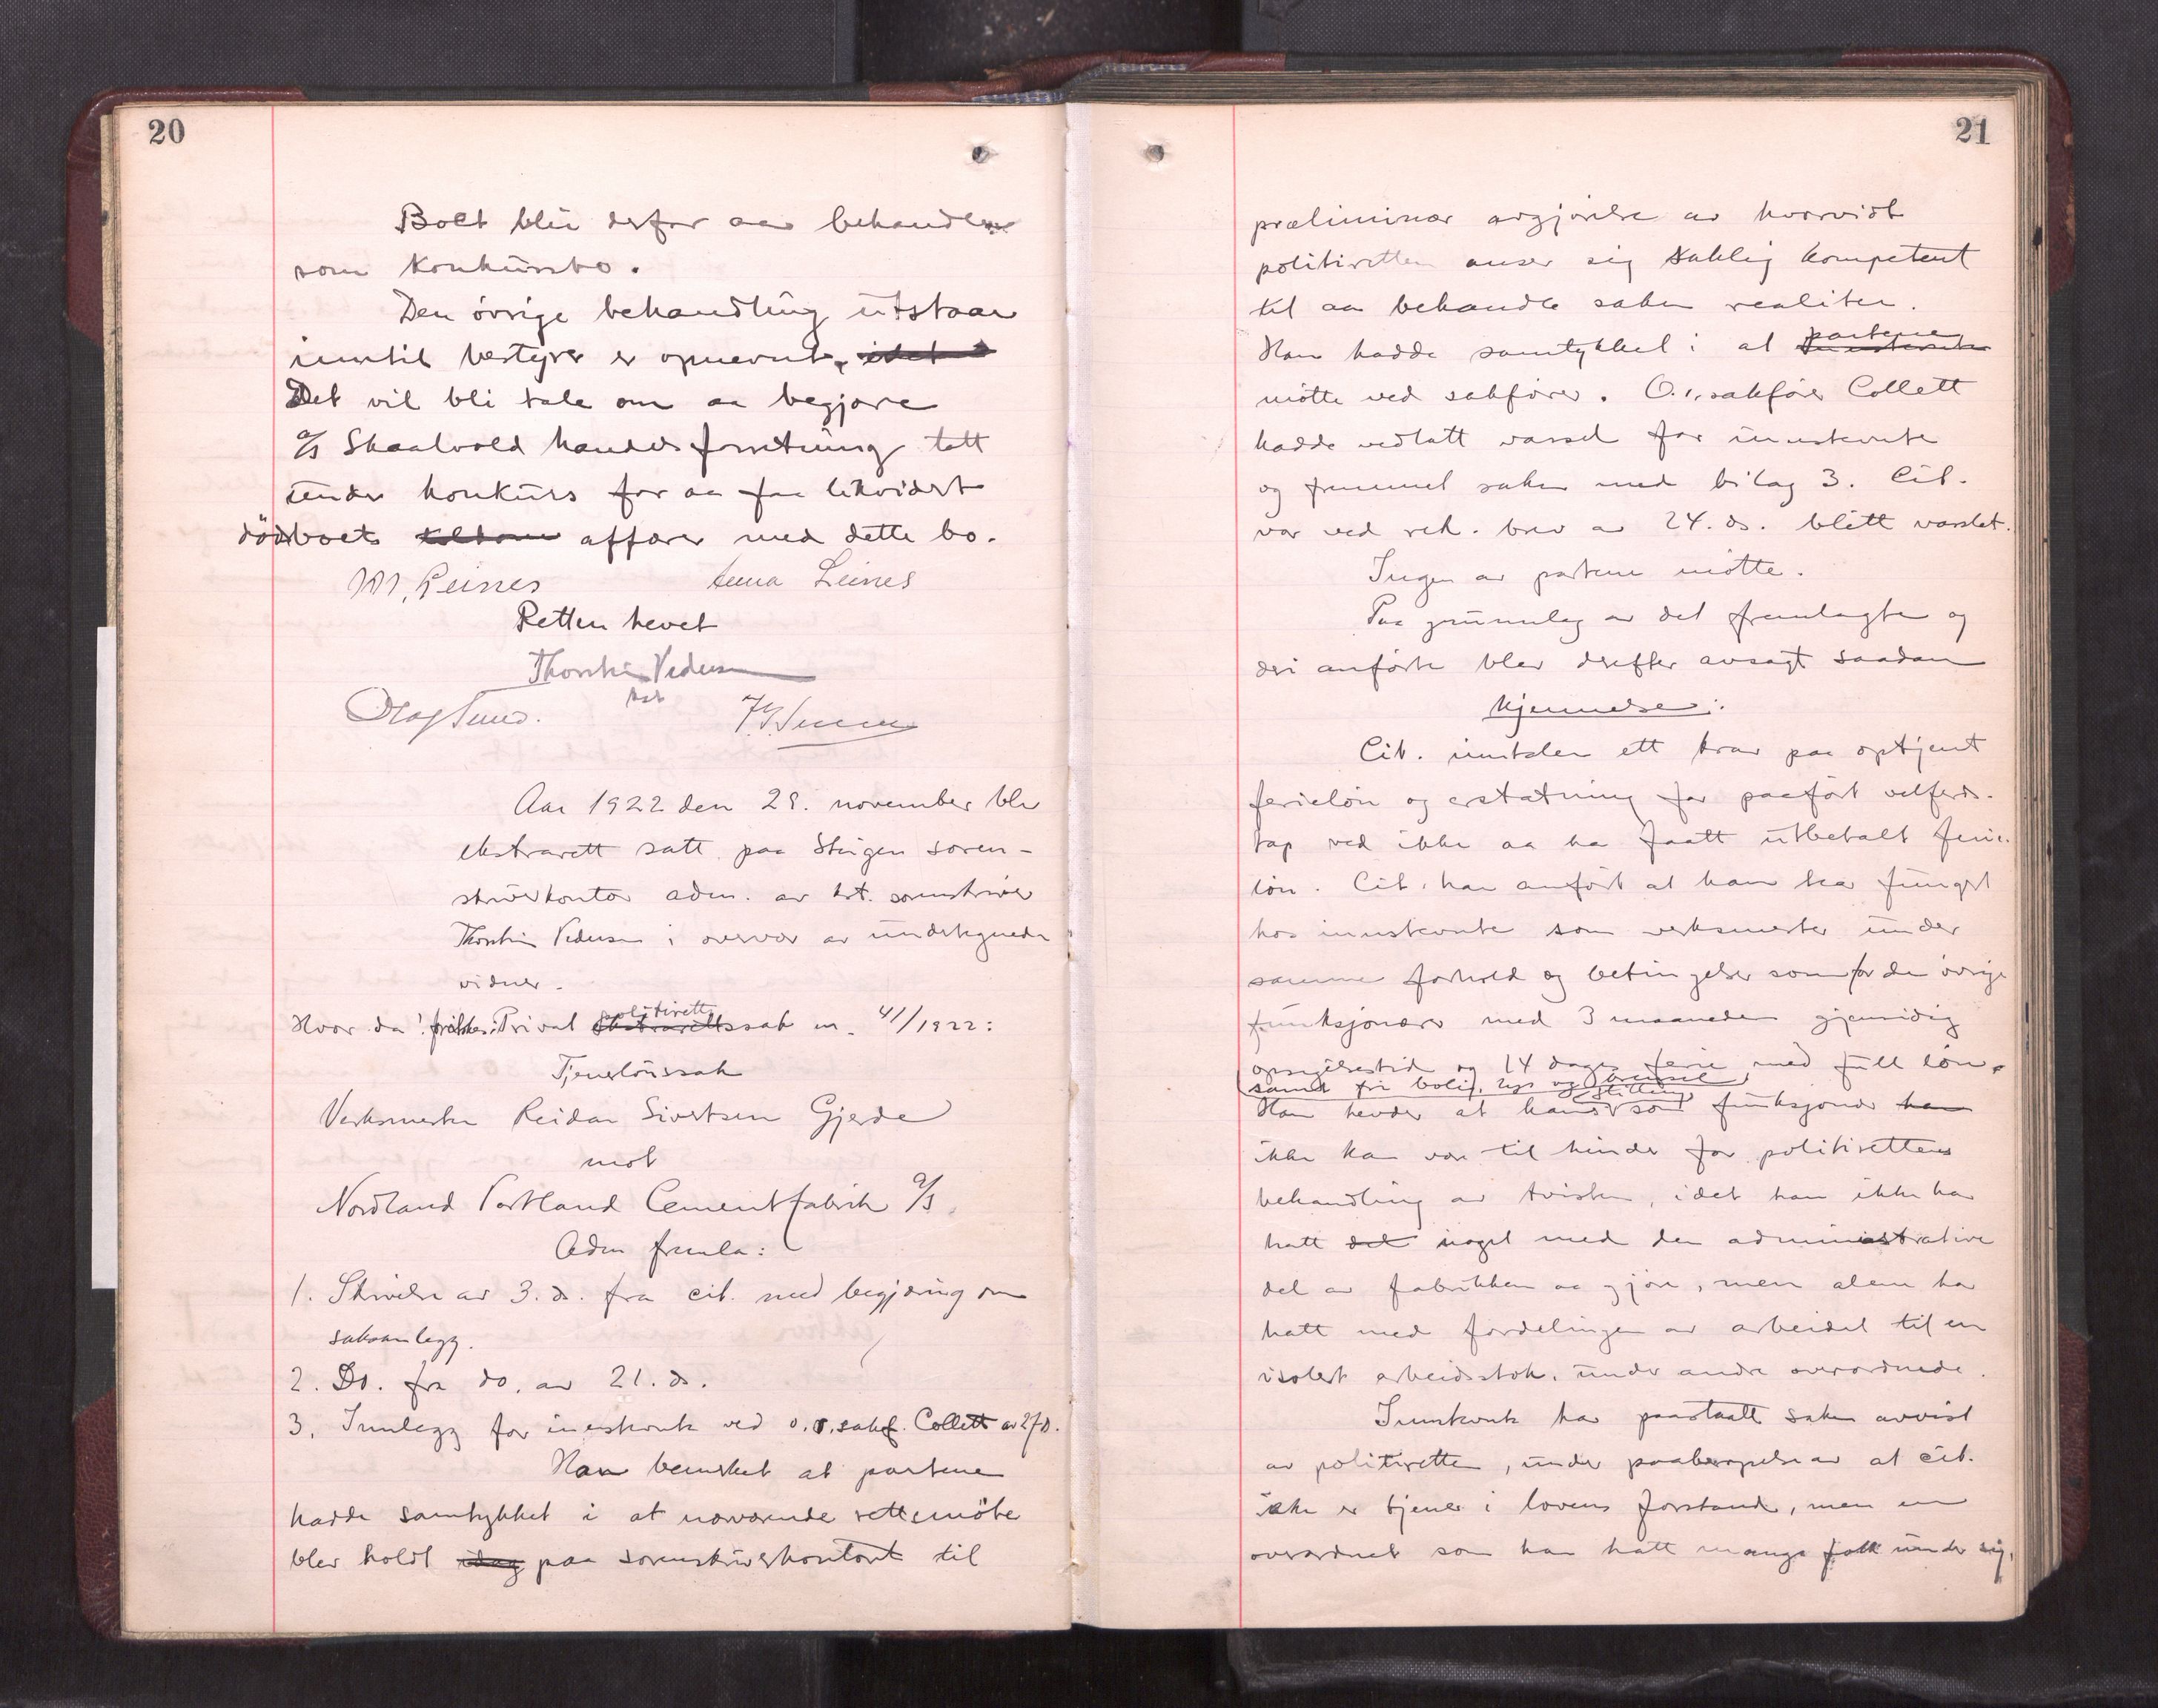 20
Boet blir derfor aa behandle
som konkursbo.
Den övrige behandling utstaar
inntil bestyrer er opnevnt, idet
Det vil bli tale om aa begjære
a/s Skaalvold handelsforretning tatt
under konkurs for aa faa likvidert
dödsboets affærer med dette bo.
M. Leines Anna Leines
Retten hevet
Thorstein Pedersen
kst
Olaf Sund.
Aar 1922 den 28. november blev
ekstrarett satt paa Steigen soren-
skriverkontor adm. av kst. sorenskriver
Thorstein Pedersen i overvær av undertegnede
vidner.
Hvor da foretokes: Privat politiretts ekstrarettssak nr. 41/1922:
Tjenerlönssak
Verksmester Reidar Sivertsen Gjerde
mot
Nordland Portland Cementfabrik a/s.
Adm fremla:
1. Skrivelse av 3. ds. fra cit. med begjæring om
saksanlegg.
2. Do. fra do. av 21. ds.
3. Innlegg for innstevnte ved o.r.sakf. Collett av 27 ds.
Han bemerket at partene
hadde samtykket i at nærværende rettsmöte
blev holdt idag paa sorenskriverkontoret til
21
præliminær avgjörelse av hvorvidt
politiretten anser sig saklig kompetent
til aa behandle saken realiter.
Han hadde samtykket i at partene innstevnte
mötte ved sakförer. O.r.sakförer Collett
hadde vedtatt varsel for innstevnte
og fremmet saken med bilag 3. Cit.
var ved rek. brev av 24. ds. blitt varslet.
Ingen av partene mötte.
Paa grunnlag av det fremlagte og
deri anförte blev derefter avsagt saadan
kjennelse:
Cit. inntaler ett krav paa optjent
ferielön og erstatning for paafört velferds-
tap ved ikke aa ha faatt utbetalt ferie-
lön. Cit. har anfört at han har fungert
hos innstevnte som verksmester under
samme forhold og betingelser som for de övrige
funksjonærer med 3 maaneders gjensidig
opsigelsestid og 14 dages ferie med full lön,
samt fri bolig, lys og brensel
Han hevder at hans stilling som funksjonær han
ikke kan være til hinder for politirettens
behandling av tvisten, idet han ikke har
hatt det noget med den administrative
del av fabrikken aa gjöre, men alene har
hatt med fordelingen av arbeidet til en
isolert arbeidsstok, under andre overordnede.
Innstevnte har paastaatt saken avvist
av politiretten, under paaberopelse av at cit.
ikke er tjener i lovens forstand, men en
overordnet som har hatt mange folk under sig,